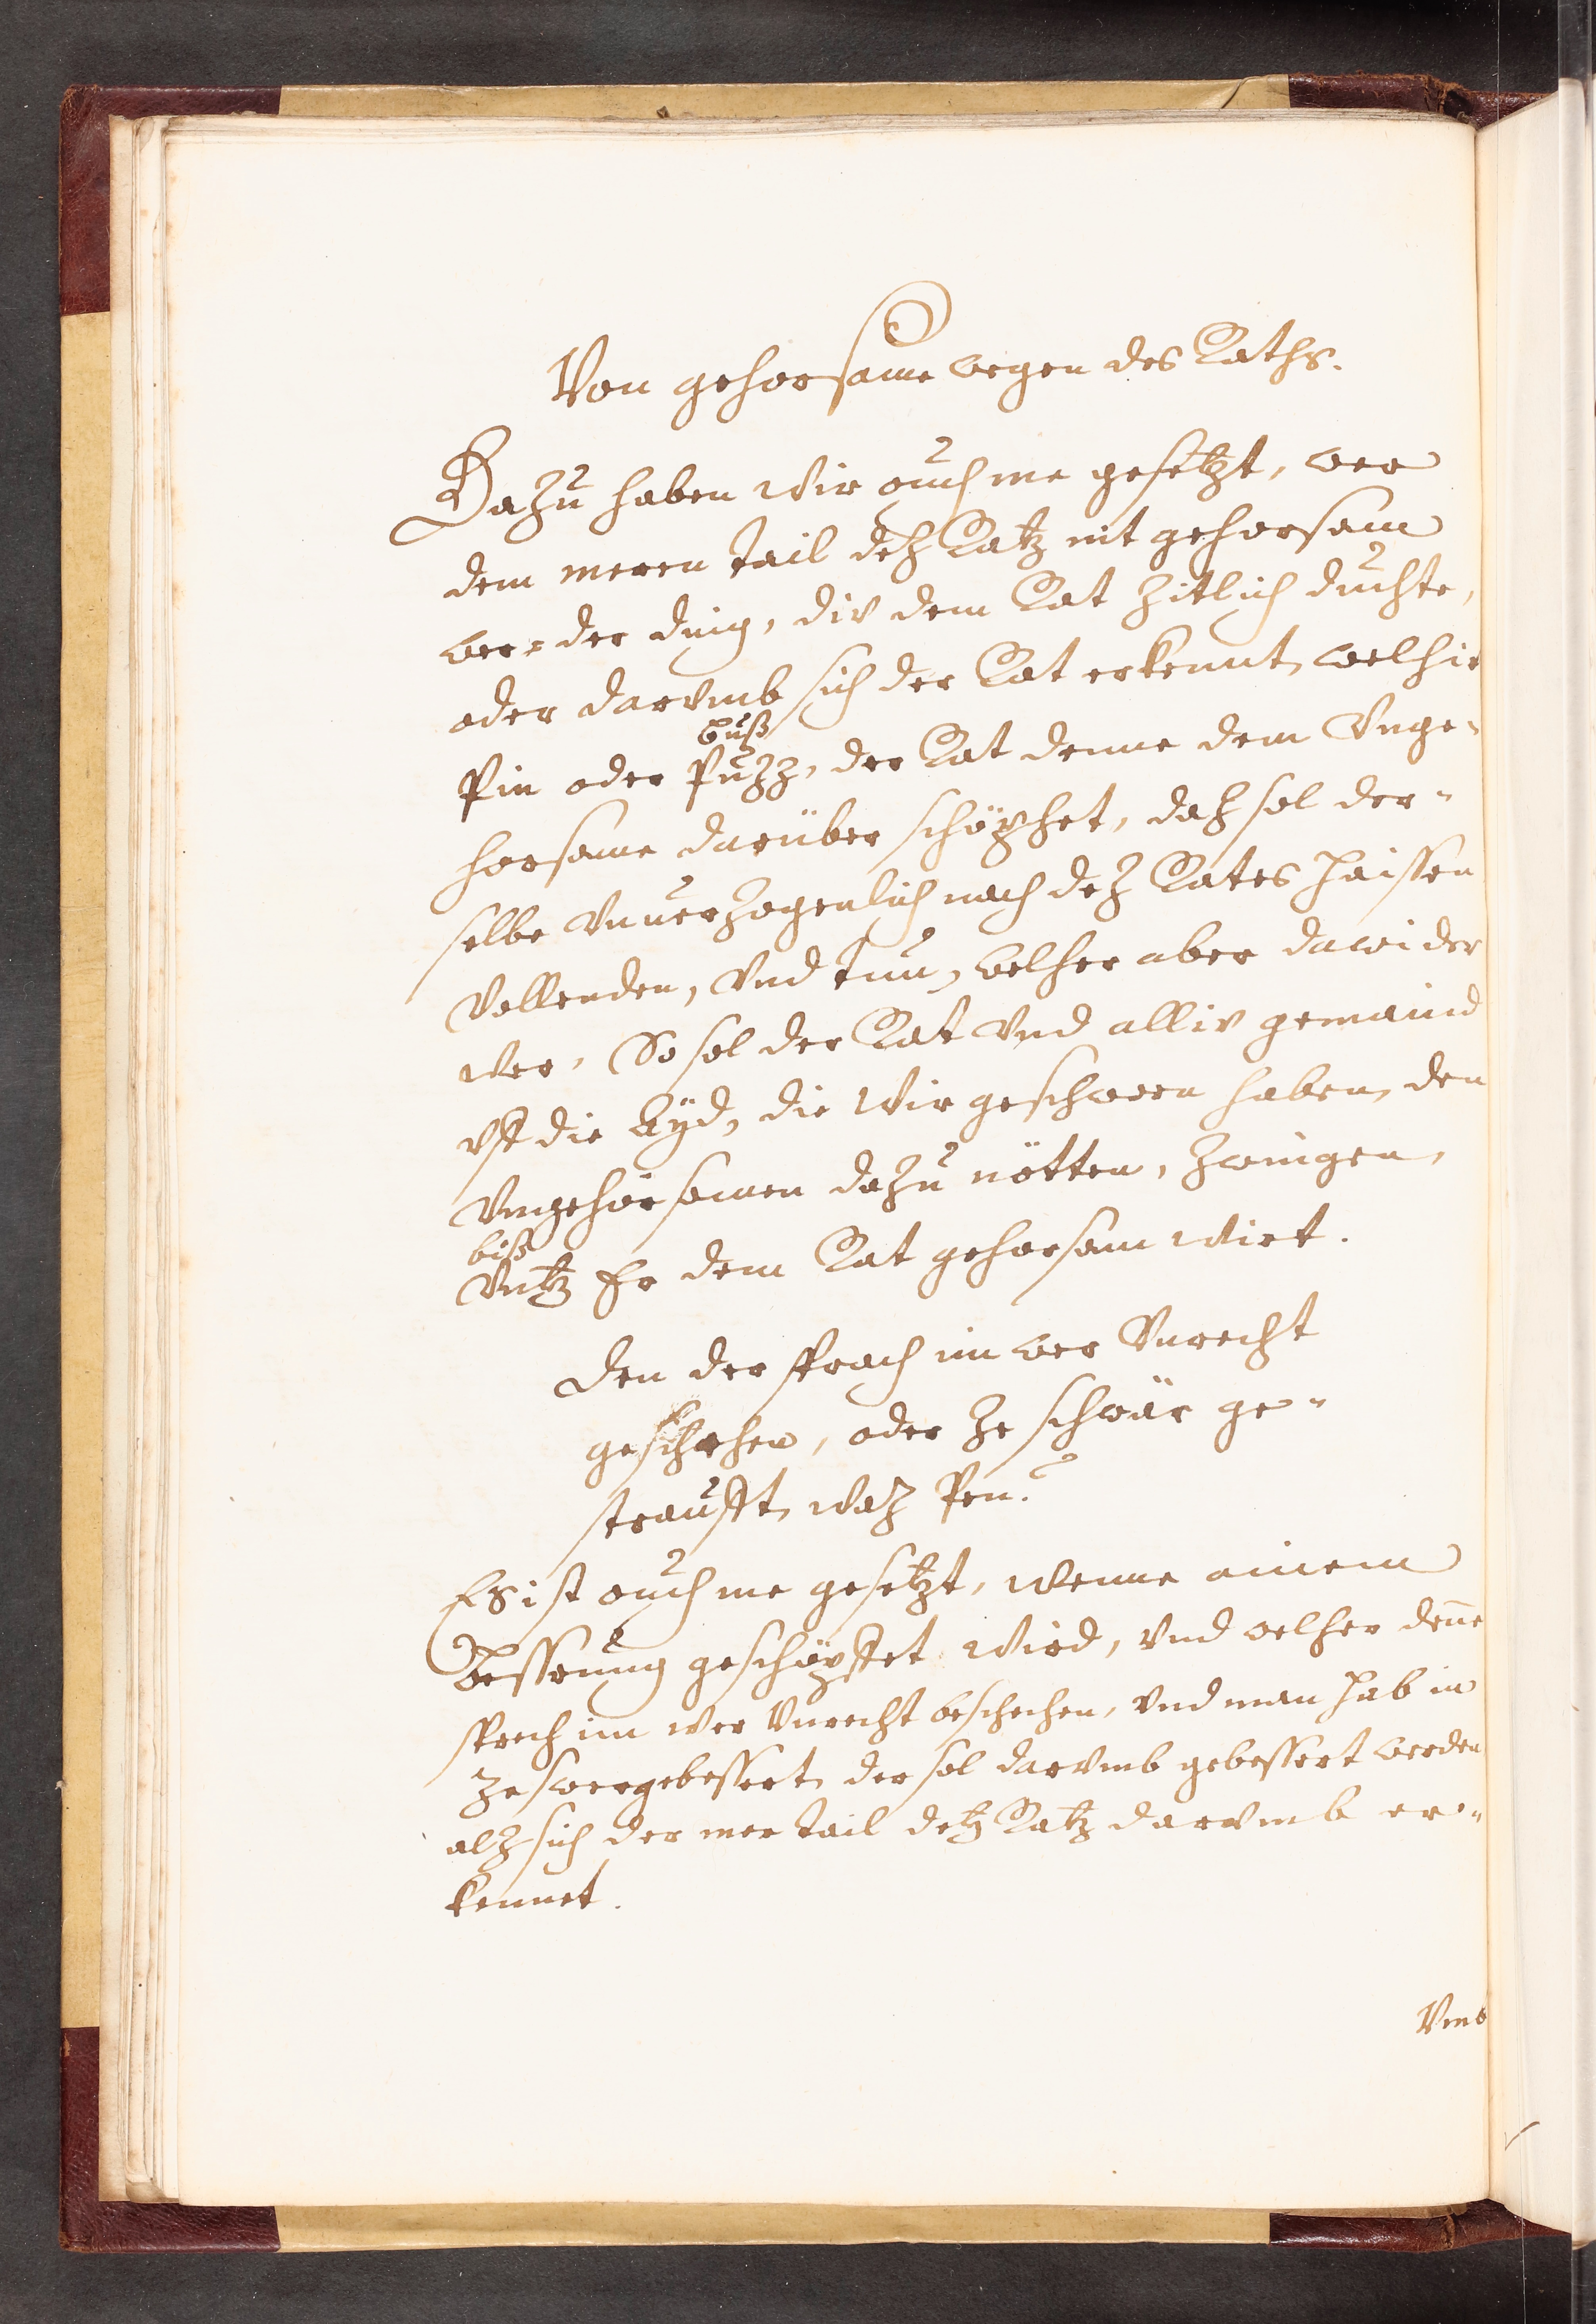 Von gehorsame wegen des Raths.
Dazu haben wir ouch me gesetzt, wer
dem meren tail detz Ratz nit gehorsam
wer, der ding, div dem Rat zitlich duchte,
oder darvmb sich der Rat erkennt, welhie
buß
Pin oder Puzz, der Rat denne dem Vnge-
horsame darüber schöpfet, daz sol der-
selbe vnuerzogenlich nach dez Rates haissen
Vollenden, Vnd tun, welher aber dawider
wer, So sol der Rat Vnd alliv gemaind
vff die Ayd, die Wir geschworn haben, den
Vngehorsamen dazu nötten, Zwingen,
biß
Vntz Er dem Rat gehorsam wirt.
Den der sprach im wer Vnrecht
geschehen, oder ze schwär ge-
straufft, waz Pen?
Es ist ouch me gesetzt, wenne ainem
Bessrung geschöpffet wird, vnd welher deñe
sprech im wer Vnrecht beschehen, vnd man hab in
ze swer gebessert, der sol darvmb gebessert werden
alz sich der mer tail detz Ratz darvmb er-
kennet.
Vmb